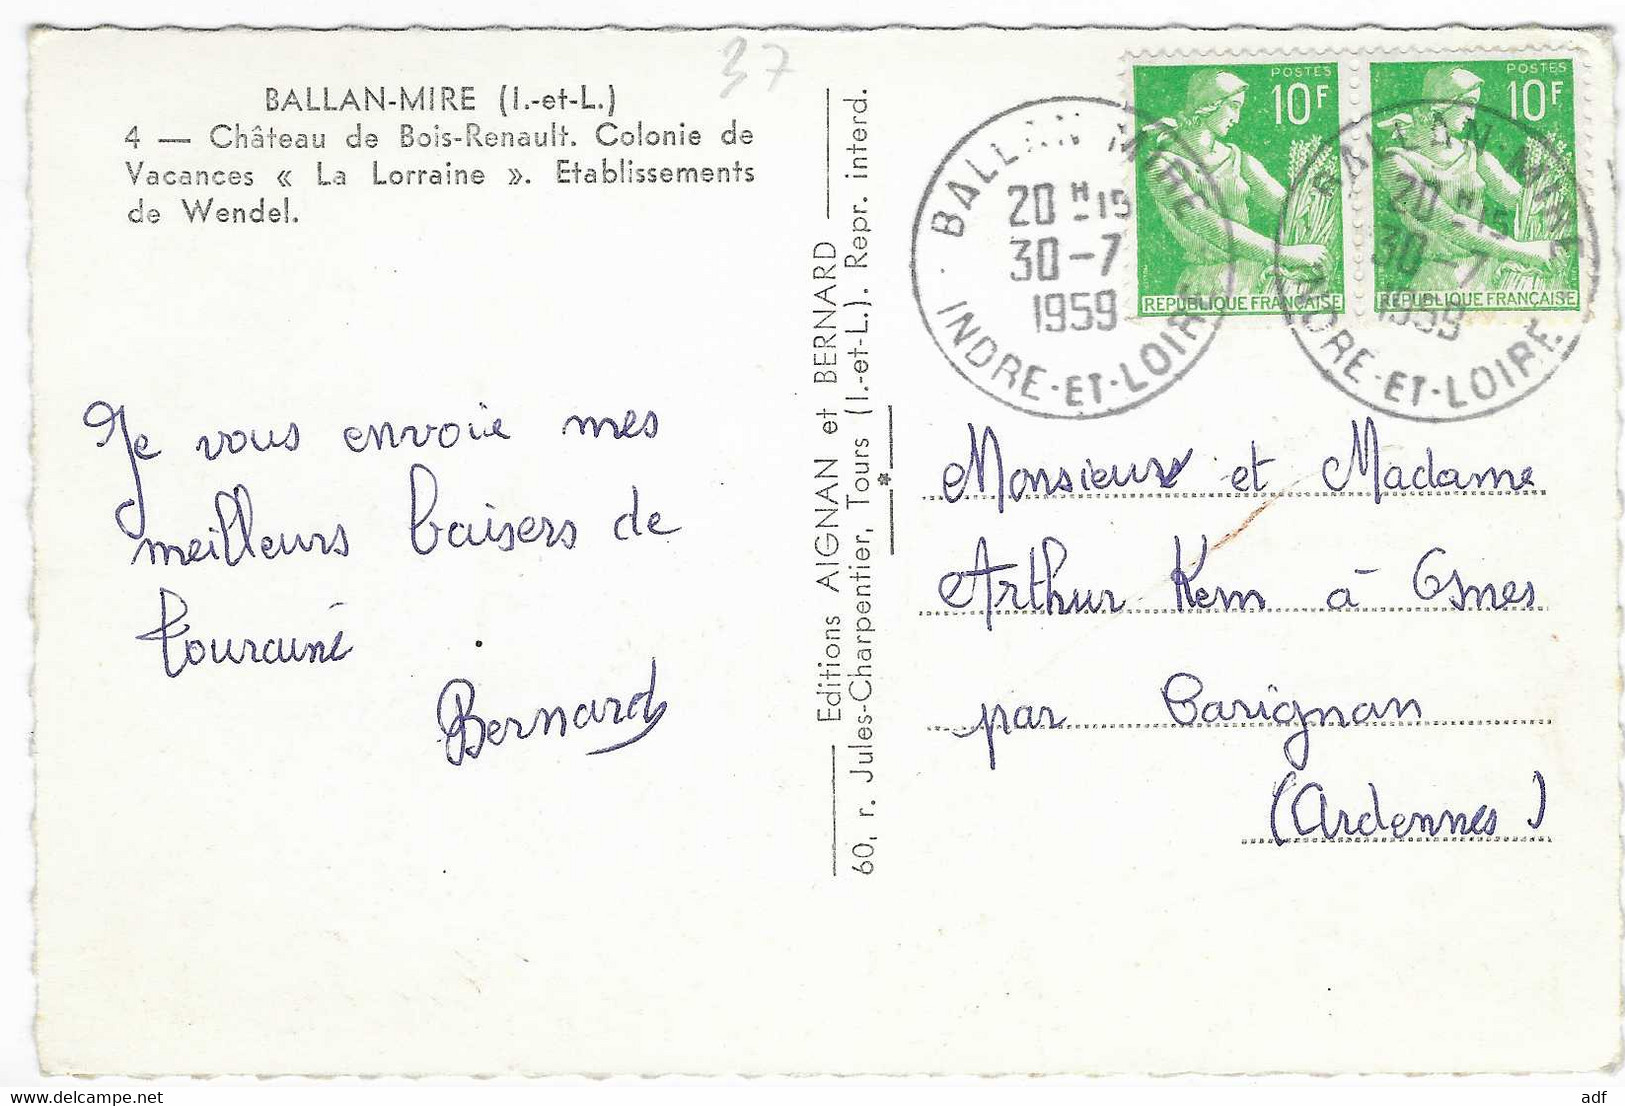 37
BALLAN-MIRE (I.-et-L.)
4 — Château de Bois-Renault. Colonie de
Vacances « La Lorraine ». Etablissements
de Wendel.
Je vous envoie mes
meilleurs baisers de
Touraine
Bernard
Editions AIGNAN et BERNARD
60, r. Jules-Charpentier, Tours (I.-et-L.). Repr. interd.
POSTES
10F
REPUBLIQUE FRANÇAISE
POSTES
10F
REPUBLIQUE FRANÇAISE
BALLAN-MIRE
20 H-15
30-7
1959
INDRE-ET-LOIRE
BALLAN-MIRE
20 H-15
30-7
1959
INDRE-ET-LOIRE
Monsieur et Madame
Arthur Kem à Osnes
par Carignan
(Ardennes)
delcampe.net
adf